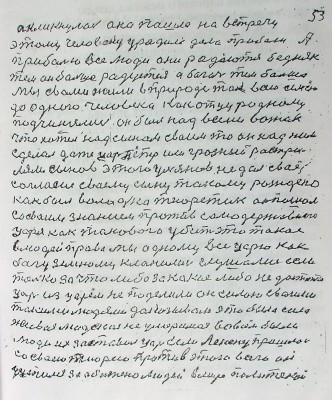 53
откликнулася она пашло на встречу
этому человеку урадили дела прибыли А
прибыли все люди они радоются бедняк
тем он больше радуется а богач тем более
мы своми жили в природе так, всем
до одного человека как отцу родному
подчинялися он был над всеми вожак
что хотел над сынам своем то он над ним
сделал даже царь Пётр или грозный растре
ляли сынов этого умения не дал свае
согласия своему сыну такому рождено
как был володя теоретик он пошол
со своим знанием против самодержавного
царя как такового убить это такое
в людей права мы одному все царю как
богу земному кланялися слушали если
только за что либо за какие либо не
царь из царём не поделили он силою своими
такими людями доказывал это была сила
живая людская не умирала в войны были
люди их заставил царь если Ленину пришлось
со своею теорею против этого всего он
учителя за обижено людей вёл политекой